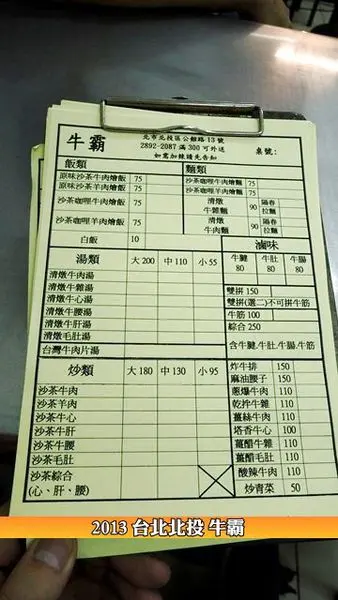 牛霸
北市北投區公館路13號
2892-2087滿300可外送
如需加辣請先告知
桌號：
飯類 麵類
原味沙茶牛肉燴飯 75 沙茶咖哩牛肉燴麵 75
原味沙茶羊肉燴飯 75 沙茶咖哩羊肉燴麵 75
沙茶咖哩牛肉燴飯 75 清燉牛雜麵 90 陽春 拉麵
沙茶咖哩羊肉燴飯 75 清燉牛肉麵 90 陽春 拉麵
白飯 10 滷味
湯類 大200 中110 小55 牛腱 80 牛肚 80 牛腸 80
清燉牛肉湯
清燉牛雜湯 雙拼150
清燉牛心湯 雙拼(選二)不可拼牛筋
清燉牛腰湯 牛筋100
清燉牛肝湯 綜合250
清燉毛肚湯
台灣牛肉片湯 含牛腱.牛肚.牛腸.牛筋
炒類 大180 中130 小95 炸牛排 150
麻油腰子 150
沙茶牛肉 蔥爆牛肉 110
沙茶羊肉 乾拌牛雜 110
沙茶牛心 薑絲牛肉 110
沙茶牛肝 塔香牛心 100
沙茶牛腰 薑醋牛雜 110
沙茶毛肚 薑醋毛肚 110
沙茶綜合 酸辣牛肉 110
(心、肝、腰) 炒青菜 50
2013 台北北投 牛霸